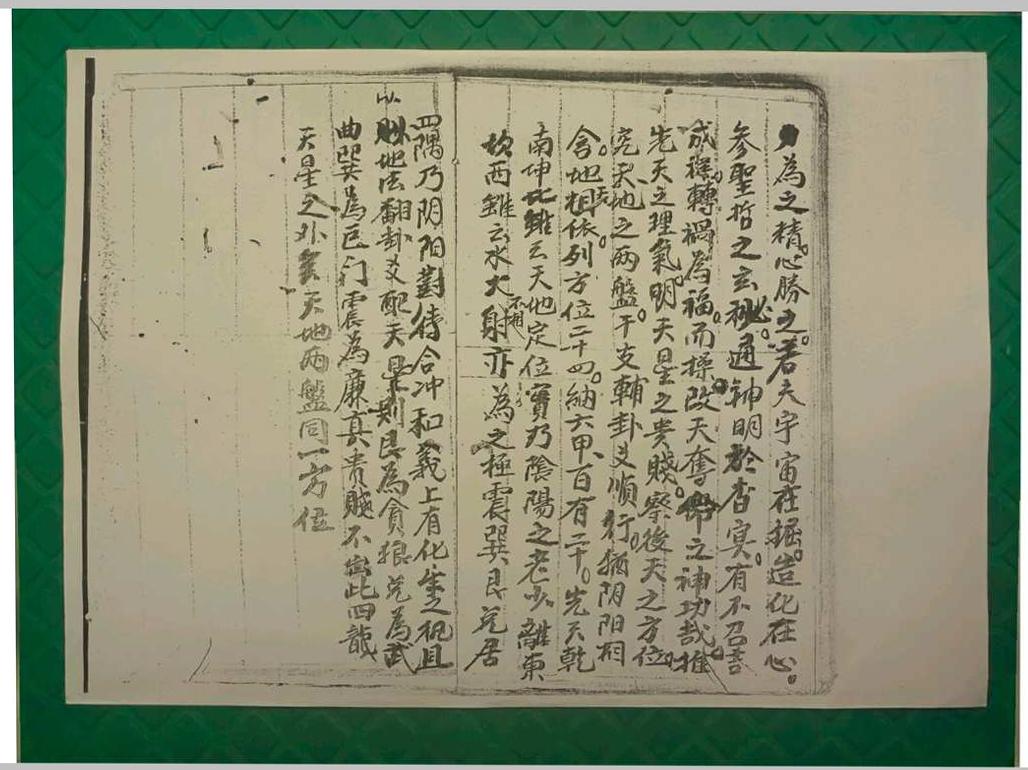 為之精。心勝之。若夫宇宙在掘。造化在心。
參聖哲之玄秘。通神明於杳冥。有不召吉
成祥。轉禍為福。而操改天奪命之神功哉。推
先天之理氣。明天星之貴賤。察後天之方位。
完天地之兩盤。干支輔卦爻順行。猶阴阳相
含。地相依。列方位二十四。納六甲、百有二十。先天乾
南坤北雖云天地定位實乃陰陽之老少離東
坎西雖云水火不相射亦為之極震巽艮兌居
四隅乃阴阳對待合冲和義上有化生之祝且
以地法翻卦爻配天星則艮為貪狼兌為武
曲巽為巨门震為廉真貴賤不出此四龍
天星之外矣天地两盤同一方位